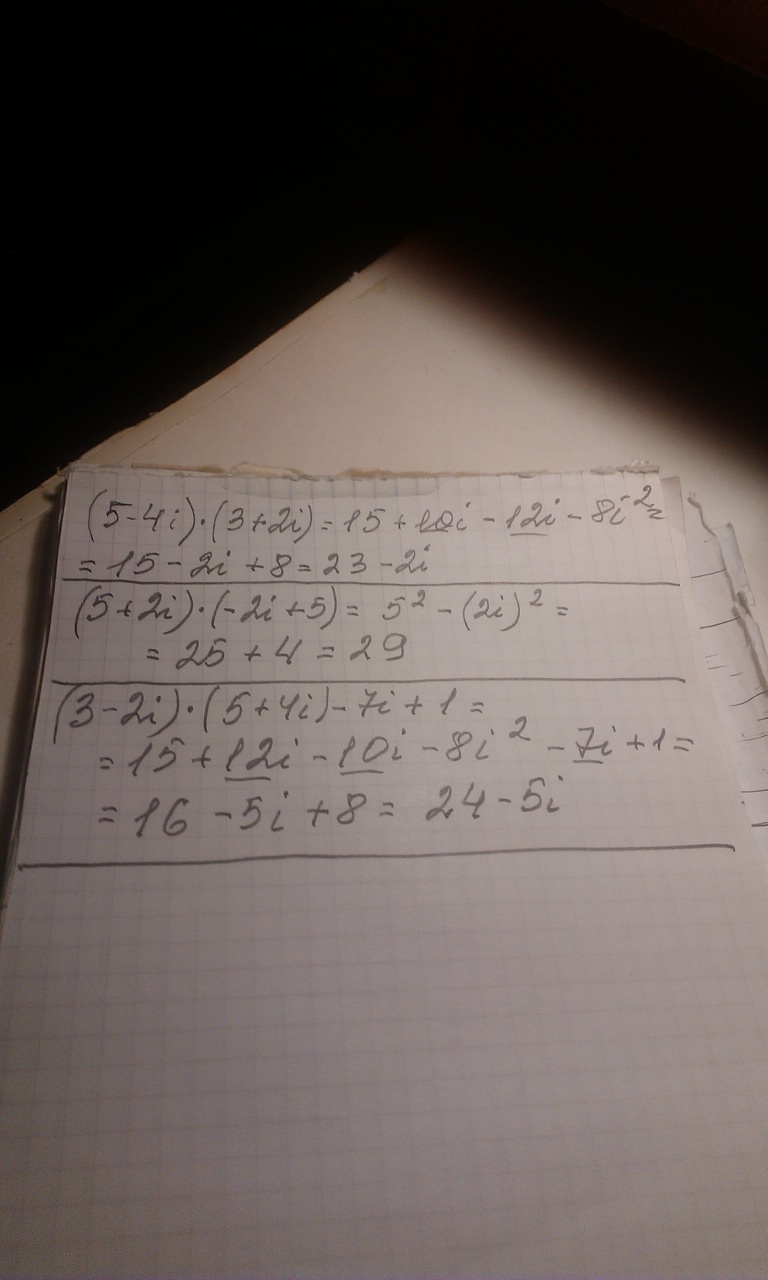 (5-4i)·(3+2i)=15+10i-12i-8i²=
=15-2i+8=23-2i
(5+2i)·(-2i+5)= 5²-(2i)²=
=25+4=29
(3-2i)·(5+4i)-7i+1=
=15+12i-10i-8i²-7i+1=
=16-5i+8= 24-5i